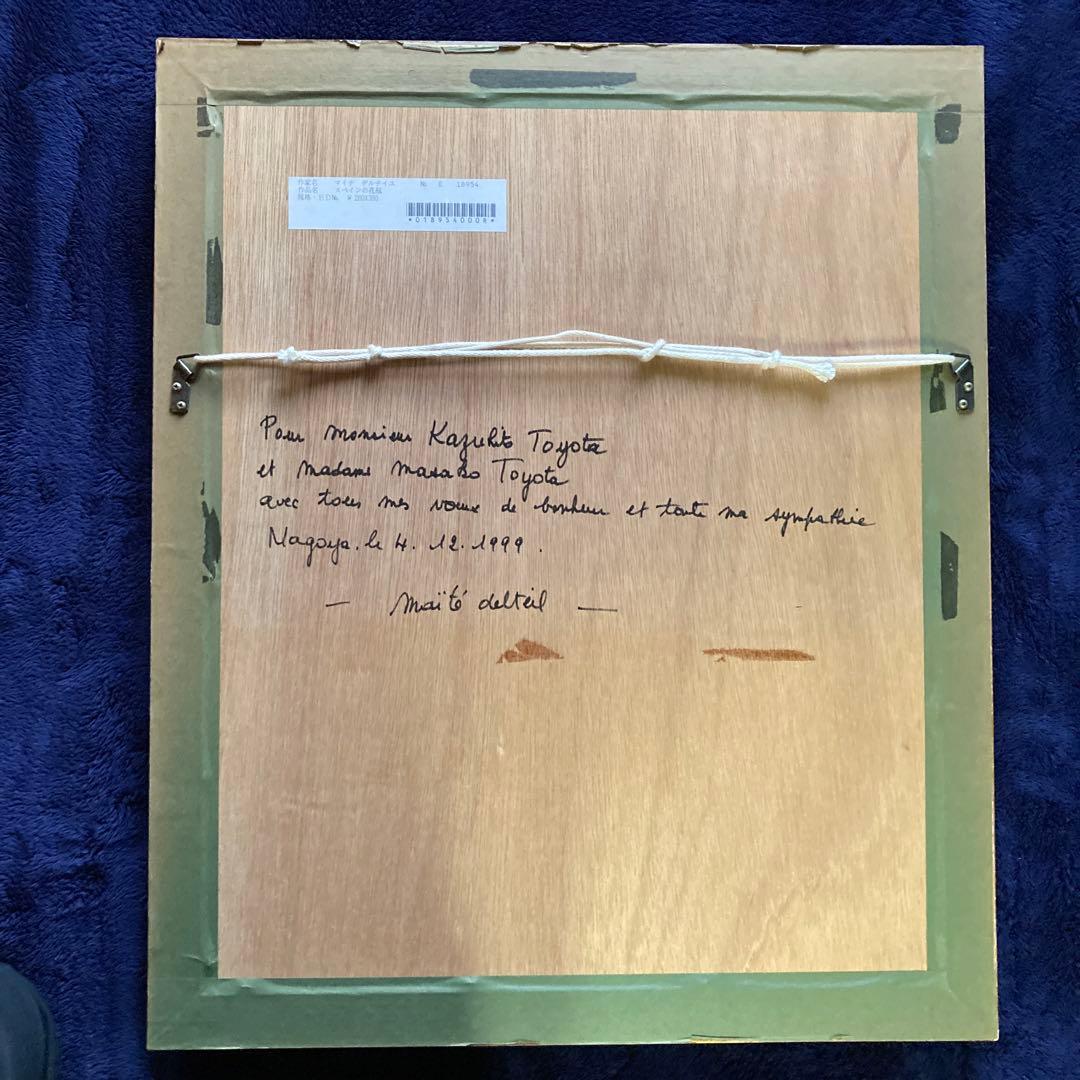 作家名 マイテ デルテイユ № E 18954
作品名 スペインの花瓶
規格・ED№ W
*0189540008*
Pour monsieur Kazuhito Toyota
et madame masako Toyota
avec tous mes voeux de bonheur et toute ma sympathie
Nagoya. le 4. 12. 1999.
— maïté delteil —